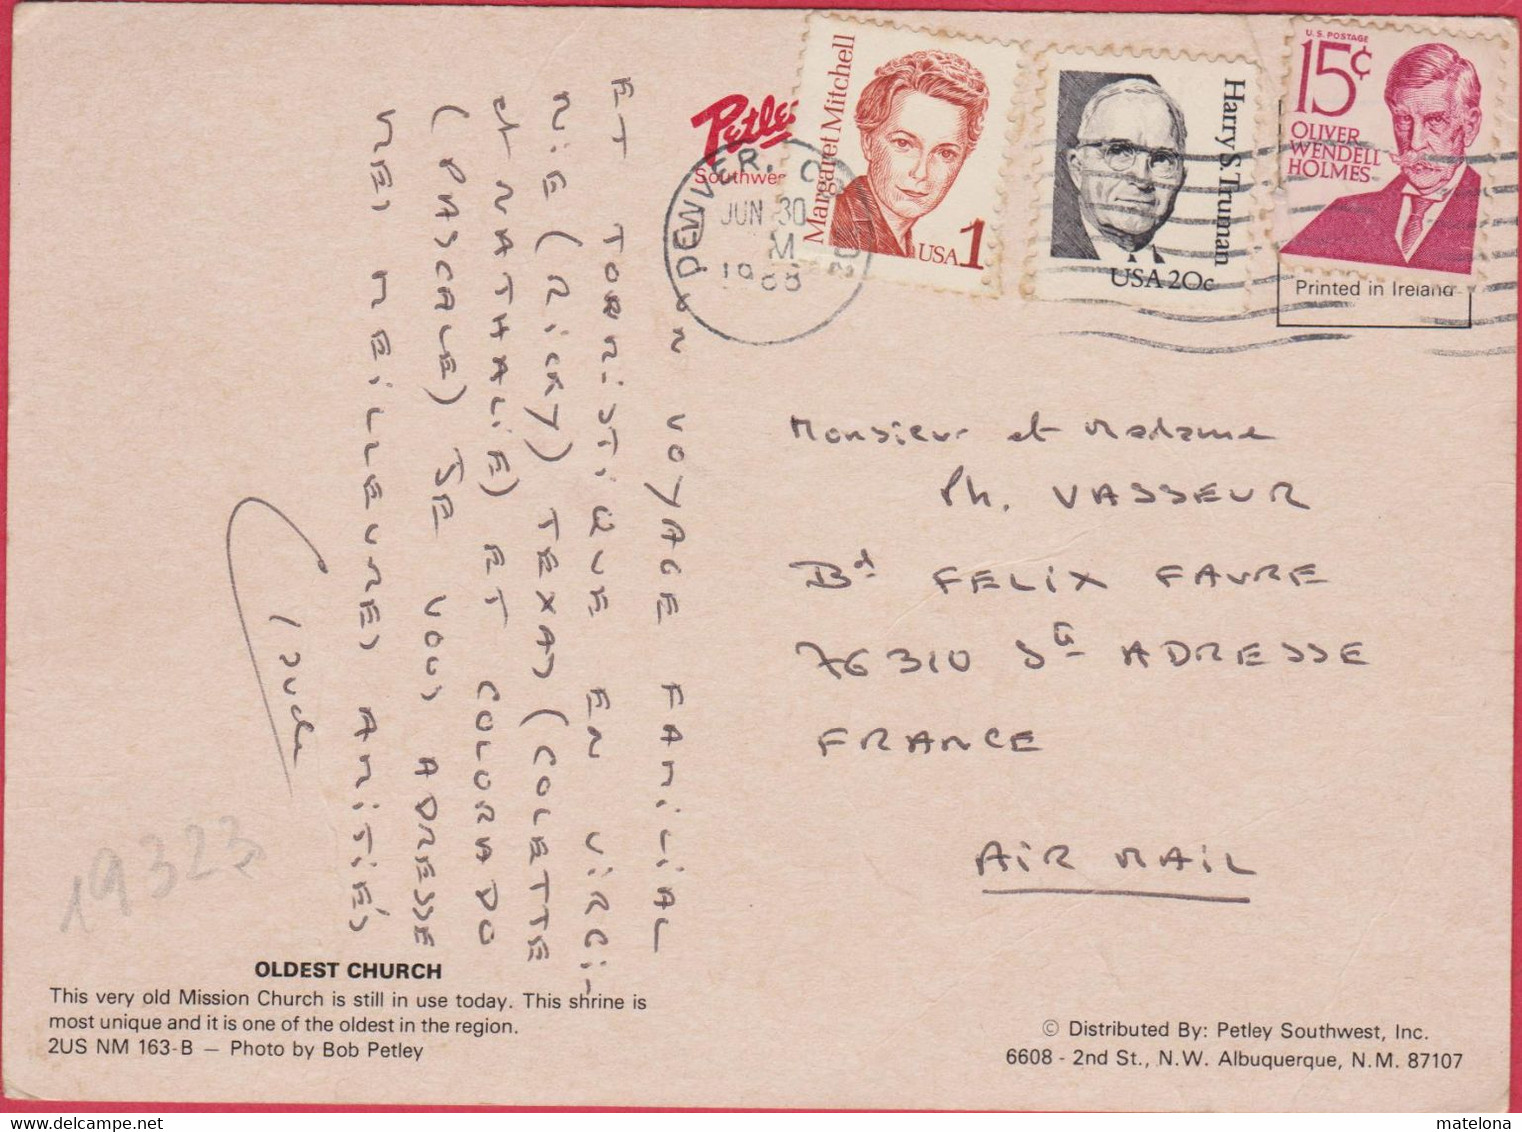 UN VOYAGE FAMILIAL
ET TOURISTIQUE EN VIRGI-
NIE (RICKY) TEXAS (COLETTE
et NATHALIE) ET COLORADO
(PASCALE) JE VOUS ADRESSE
MES MEILLEURES AMITIÉS
19323
OLDEST CHURCH
This very old Mission Church is still in use today. This shrine is
most unique and it is one of the oldest in the region.
2US NM 163-B — Photo by Bob Petley
Petley
Southwe
DENVER, CO
JUN 30
M
1988
802
Margaret Mitchell
USA 1
Harry S. Truman
USA 20c
U.S. POSTAGE
15¢
OLIVER
WENDELL
HOLMES
Printed in Ireland
Monsieur et Madame
Ph. VASSEUR
Bd FELIX FAURE
76310 Ste ADRESSE
FRANCE
AIR MAIL
© Distributed By: Petley Southwest, Inc.
6608 - 2nd St., N.W. Albuquerque, N.M. 87107
matelona